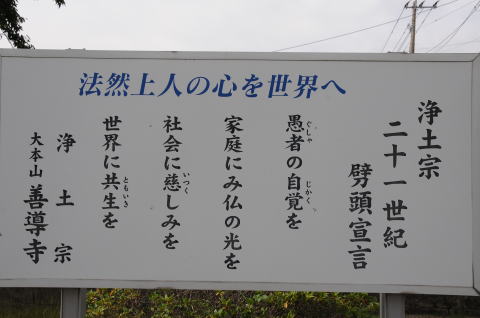 法然上人の心を世界へ
浄土宗
二十一世紀
劈頭宣言
愚者の自覚を
ぐしゃ
じかく
家庭にみ仏の光を
社会に慈しみを
いつく
世界に共生を
ともいき
浄土宗
大本山 善導寺